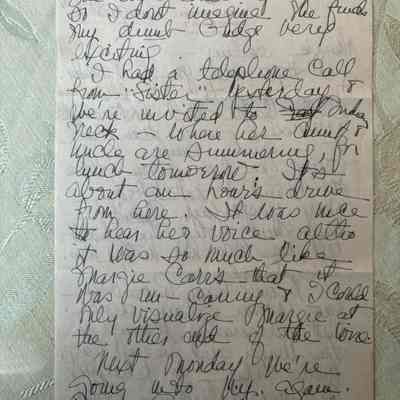 So I don't imagine she finds
my dumb  very
exciting.
I had a telephone call
from "Sister" yesterday &
We're invited to
Neck - where her Aunt &
Uncle are summering, for
lunch tomorrow. It's
about an hour's drive
from here. It was nice
to hear her voice altho
it was so much like
Margie Carr's that it
was un-canny & I could
only visualize Margie at
the other end of the line.
Next Monday we're
going in to N.Y. again.